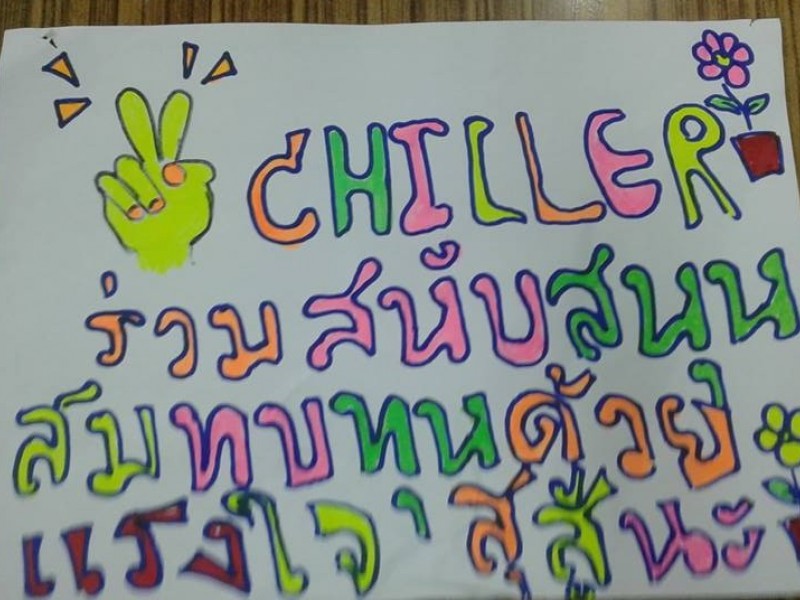 CHILLER
ร่วมสนับสนุน
สมทบทุนด้วย
แรงใจ' สุสู้นะ